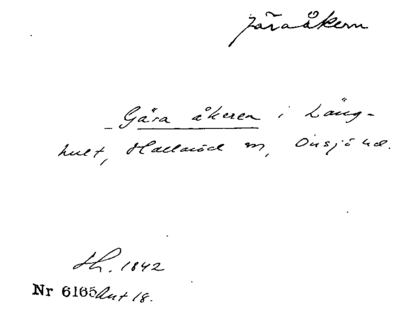 Jära åkern
Gära åkeren i Läng-
hult, Hallaröd sn, Onsjö hd.
Lh. 1842
Nr 6165 Aut 18.